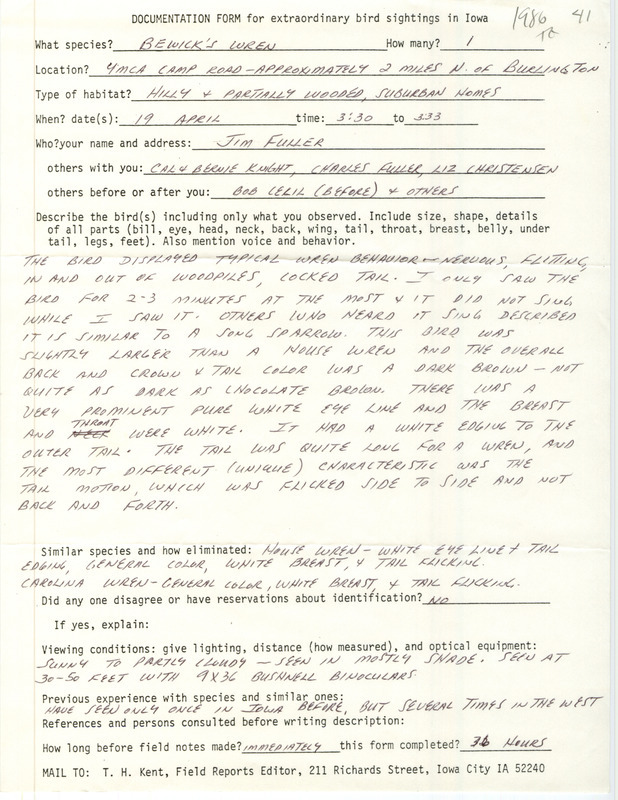 DOCUMENTATION FORM for extraordinary bird sightings in Iowa 1986 41
TK
What species? BEWICK'S WREN How many? 1
Location? YMCA CAMP ROAD - APPROXIMATELY 2 MILES N. OF BURLINGTON
Type of habitat? HILLY & PARTIALLY WOODED, SUBURBAN HOMES
When? date(s): 19 APRIL time: 3:30 to 3:33
Who?your name and address: JIM FULLER
others with you: CAL & BERNIE KNIGHT, CHARLES FULLER, LIZ CHRISTENSEN
others before or after you: BOB CECIL (BEFORE) & OTHERS
Describe the bird(s) including only what you observed. Include size, shape, details
of all parts (bill, eye, head, neck, back, wing, tail, throat, breast, belly, under
tail, legs, feet). Also mention voice and behavior.
THE BIRD DISPLAYED TYPICAL WREN BEHAVIOR - NERVOUS, FLITTING,
IN AND OUT OF WOODPILES, COCKED TAIL. I ONLY SAW THE
BIRD FOR 2-3 MINUTES AT THE MOST & IT DID NOT SING
WHILE I SAW IT. OTHERS WHO HEARD IT SING DESCRIBED
IT IS SIMILAR TO A SONG SPARROW. THIS BIRD WAS
SLIGHTLY LARGER THAN A HOUSE WREN AND THE OVERALL
BACK AND CROWN & TAIL COLOR WAS A DARK BROWN - NOT
QUITE AS DARK AS CHOCOLATE BROWN. THERE WAS A
VERY PROMINENT PURE WHITE EYE LINE AND THE BREAST
AND NECK THROAT WERE WHITE. IT HAD A WHITE EDGING TO THE
OUTER TAIL. THE TAIL WAS QUITE LONG FOR A WREN, AND
THE MOST DIFFERENT (UNIQUE) CHARACTERISTIC WAS THE
TAIL MOTION, WHICH WAS FLICKED SIDE TO SIDE AND NOT
BACK AND FORTH.
Similar species and how eliminated: HOUSE WREN - WHITE EYE LINE & TAIL
EDGING, GENERAL COLOR, WHITE BREAST, & TAIL FLICKING.
CAROLINA WREN - GENERAL COLOR, WHITE BREAST, & TAIL FLICKING.
Did any one disagree or have reservations about identification? NO
If yes, explain:
Viewing conditions: give lighting, distance (how measured), and optical equipment:
SUNNY TO PARTLY CLOUDY - SEEN IN MOSTLY SHADE. SEEN AT
30-50 FEET WITH 9X36 BUSHNELL BINOCULARS
Previous experience with species and similar ones:
HAVE SEEN ONLY ONCE IN IOWA BEFORE, BUT SEVERAL TIMES IN THE WEST
References and persons consulted before writing description:
How long before field notes made? IMMEDIATELY this form completed? 36 HOURS
MAIL TO: T. H. Kent, Field Reports Editor, 211 Richards Street, Iowa City IA 52240